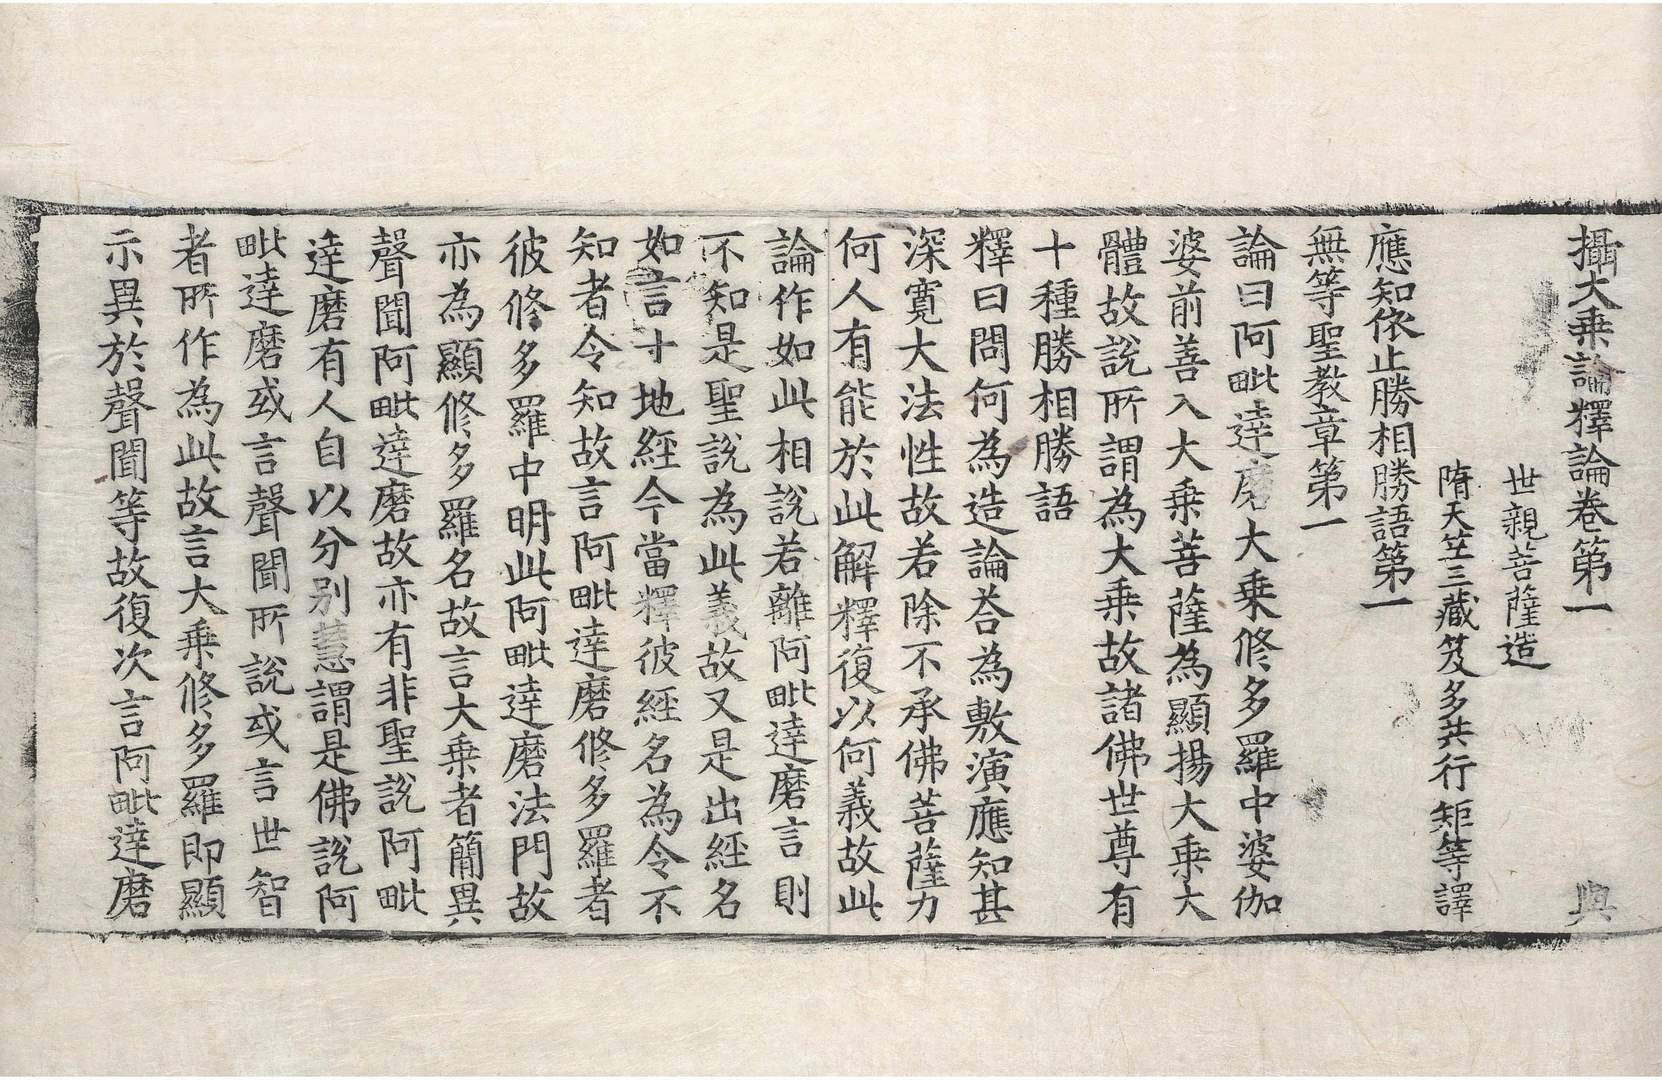 攝大乗論釋論卷第一 與
世親菩薩造
隋天竺三藏笈多共行矩等譯
應知依止勝相勝語第一
無等聖教章第一
論曰阿毗達磨大乗修多羅中婆伽
婆前善入大乗菩薩為顯揚大乗大
體故説所謂為大乗故諸佛世尊有
十種勝相勝語
釋曰問何為造論荅為敷演應知甚
深寬大法性故若除不承佛菩薩力
何人有能於此解釋復以何義故此
論作如此相説若離阿毗達磨言則
不知是聖説為此義故又是出經名
如言十地經今當釋彼經名為令不
知者令知故言阿毗達磨修多羅者
彼修多羅中明此阿毗達磨法門故
亦為顯修多羅名故言大乗者簡異
聲聞阿毗達磨故亦有非聖説阿毗
達磨有人自以分别慧謂是佛説阿
毗達磨或言聲聞所説或言世智
者所作為此故言大乗修多羅即顯
示異於聲聞等故復次言阿毗達磨